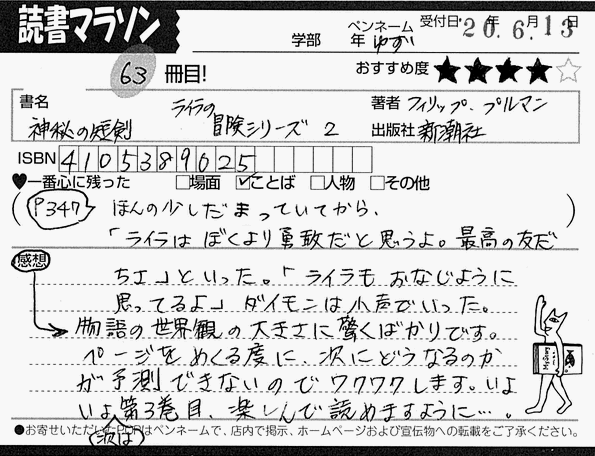 読書マラソン
学部 年
ペンネーム ゆず
受付日 '20.6.13
年 月 日
63 冊目!
おすすめ度 ★★★★☆
書名 神秘の短剣 ライラの冒険シリーズ 2
著者 フィリップ、プルマン
出版社 新潮社
ISBN 4105389025
♥一番心に残った □場面 ☑ことば □人物 □その他
(P347 ほんの少しだまっていてから、 )
「ライラは ぼくより勇敢だと思うよ。最高の友だ
感想
ちエ」といった。「ライラも おなじように
思ってるよ」ダイモンは小声でいった。
→物語の世界観の大きさに驚くばかりです。
ページをめくる度に、次にどうなるのか
が予測できないのでワクワクします。いよ
いよ第3巻目、楽しんで読めますように…。
次は
●お寄せいただいたPOPはペンネームで、店内で掲示、ホームページおよび宣伝物への転載をご了承ください。